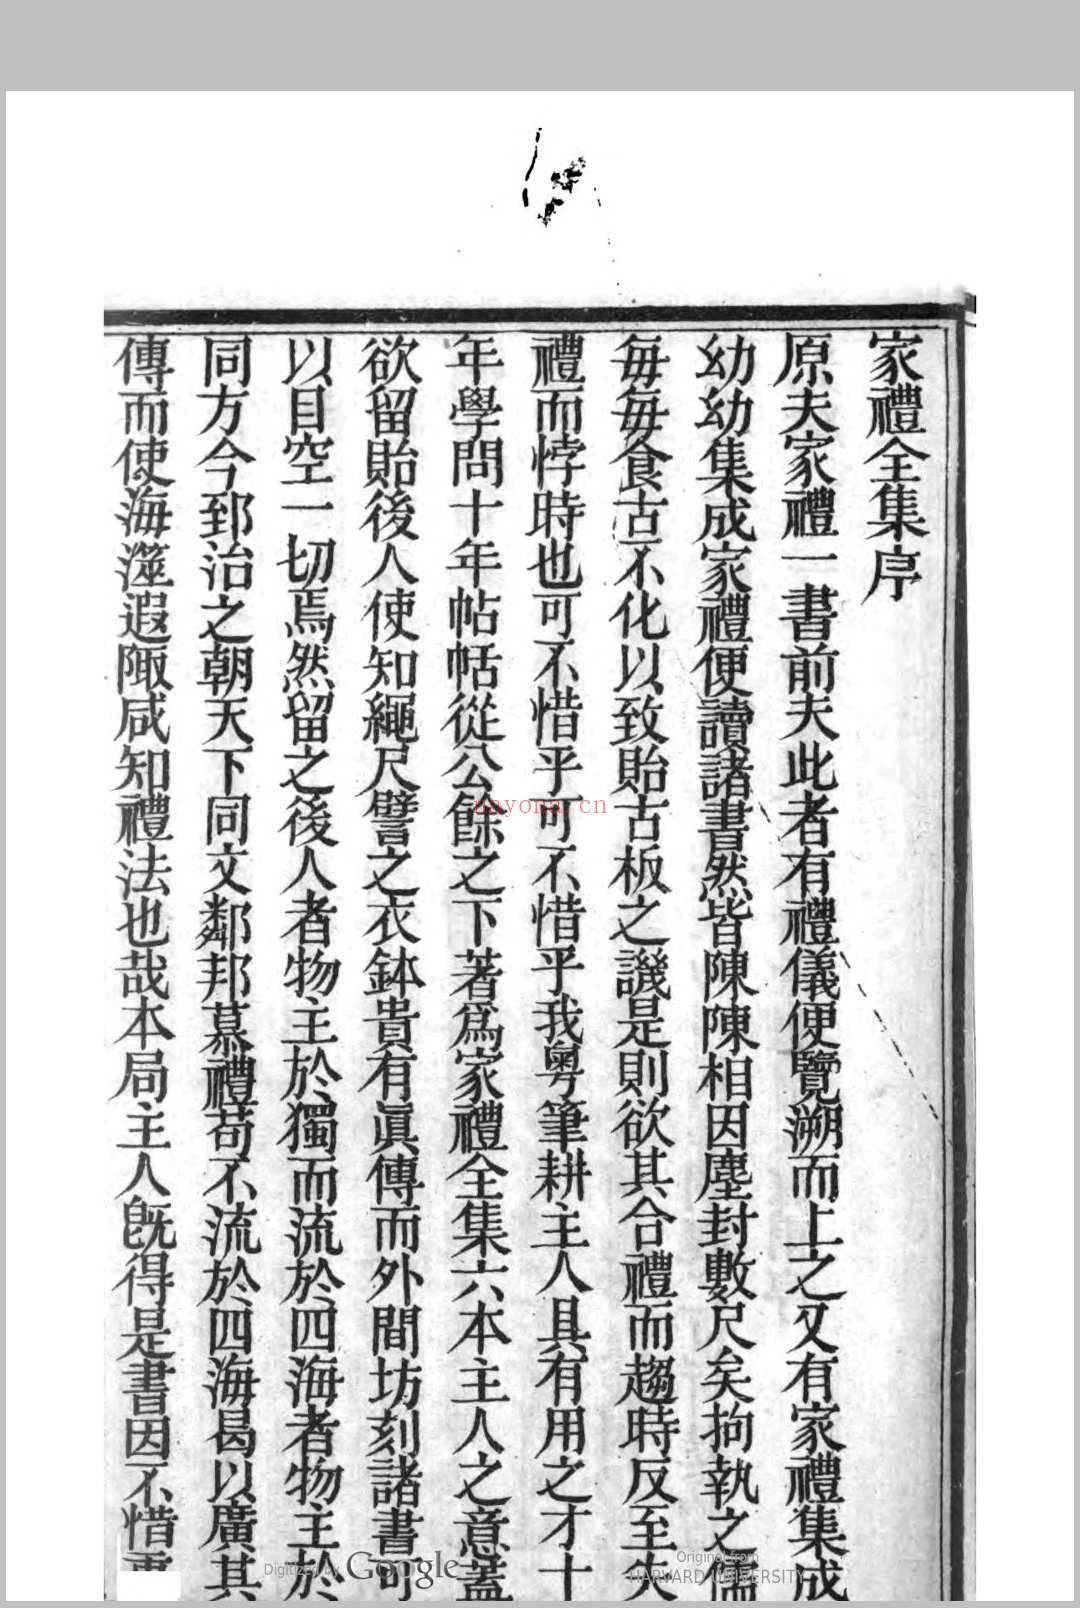 家禮全集序
原夫家禮一書前夫此者有禮儀便覽溯而上之又有家禮集成
幼幼集成家禮便讀諸書然皆陳陳相因塵封數尺矣拘執之儒
每每食古不化以致貽古板之譏是則欲其合禮而趨時反至失
禮而悖時也可不惜乎可不惜乎我粵筆耕主人具有用之才十
年學問十年帖帖從公餘之下著爲家禮全集六本主人之意蓋
欲留貽後人使知繩尺譬之衣鉢貴有眞傳而外間坊刻諸書可
以目空一切焉然留之後人者物主於獨而流於四海者物主於
同方今郅治之朝天下同文鄰邦慕禮苟不流於四海曷以廣其
傳而使海澨遐陬咸知禮法也哉本局主人旣得是書因不惜重
nayona.cn
Digitized by Google
Original from
HARVARD UNIVERSITY